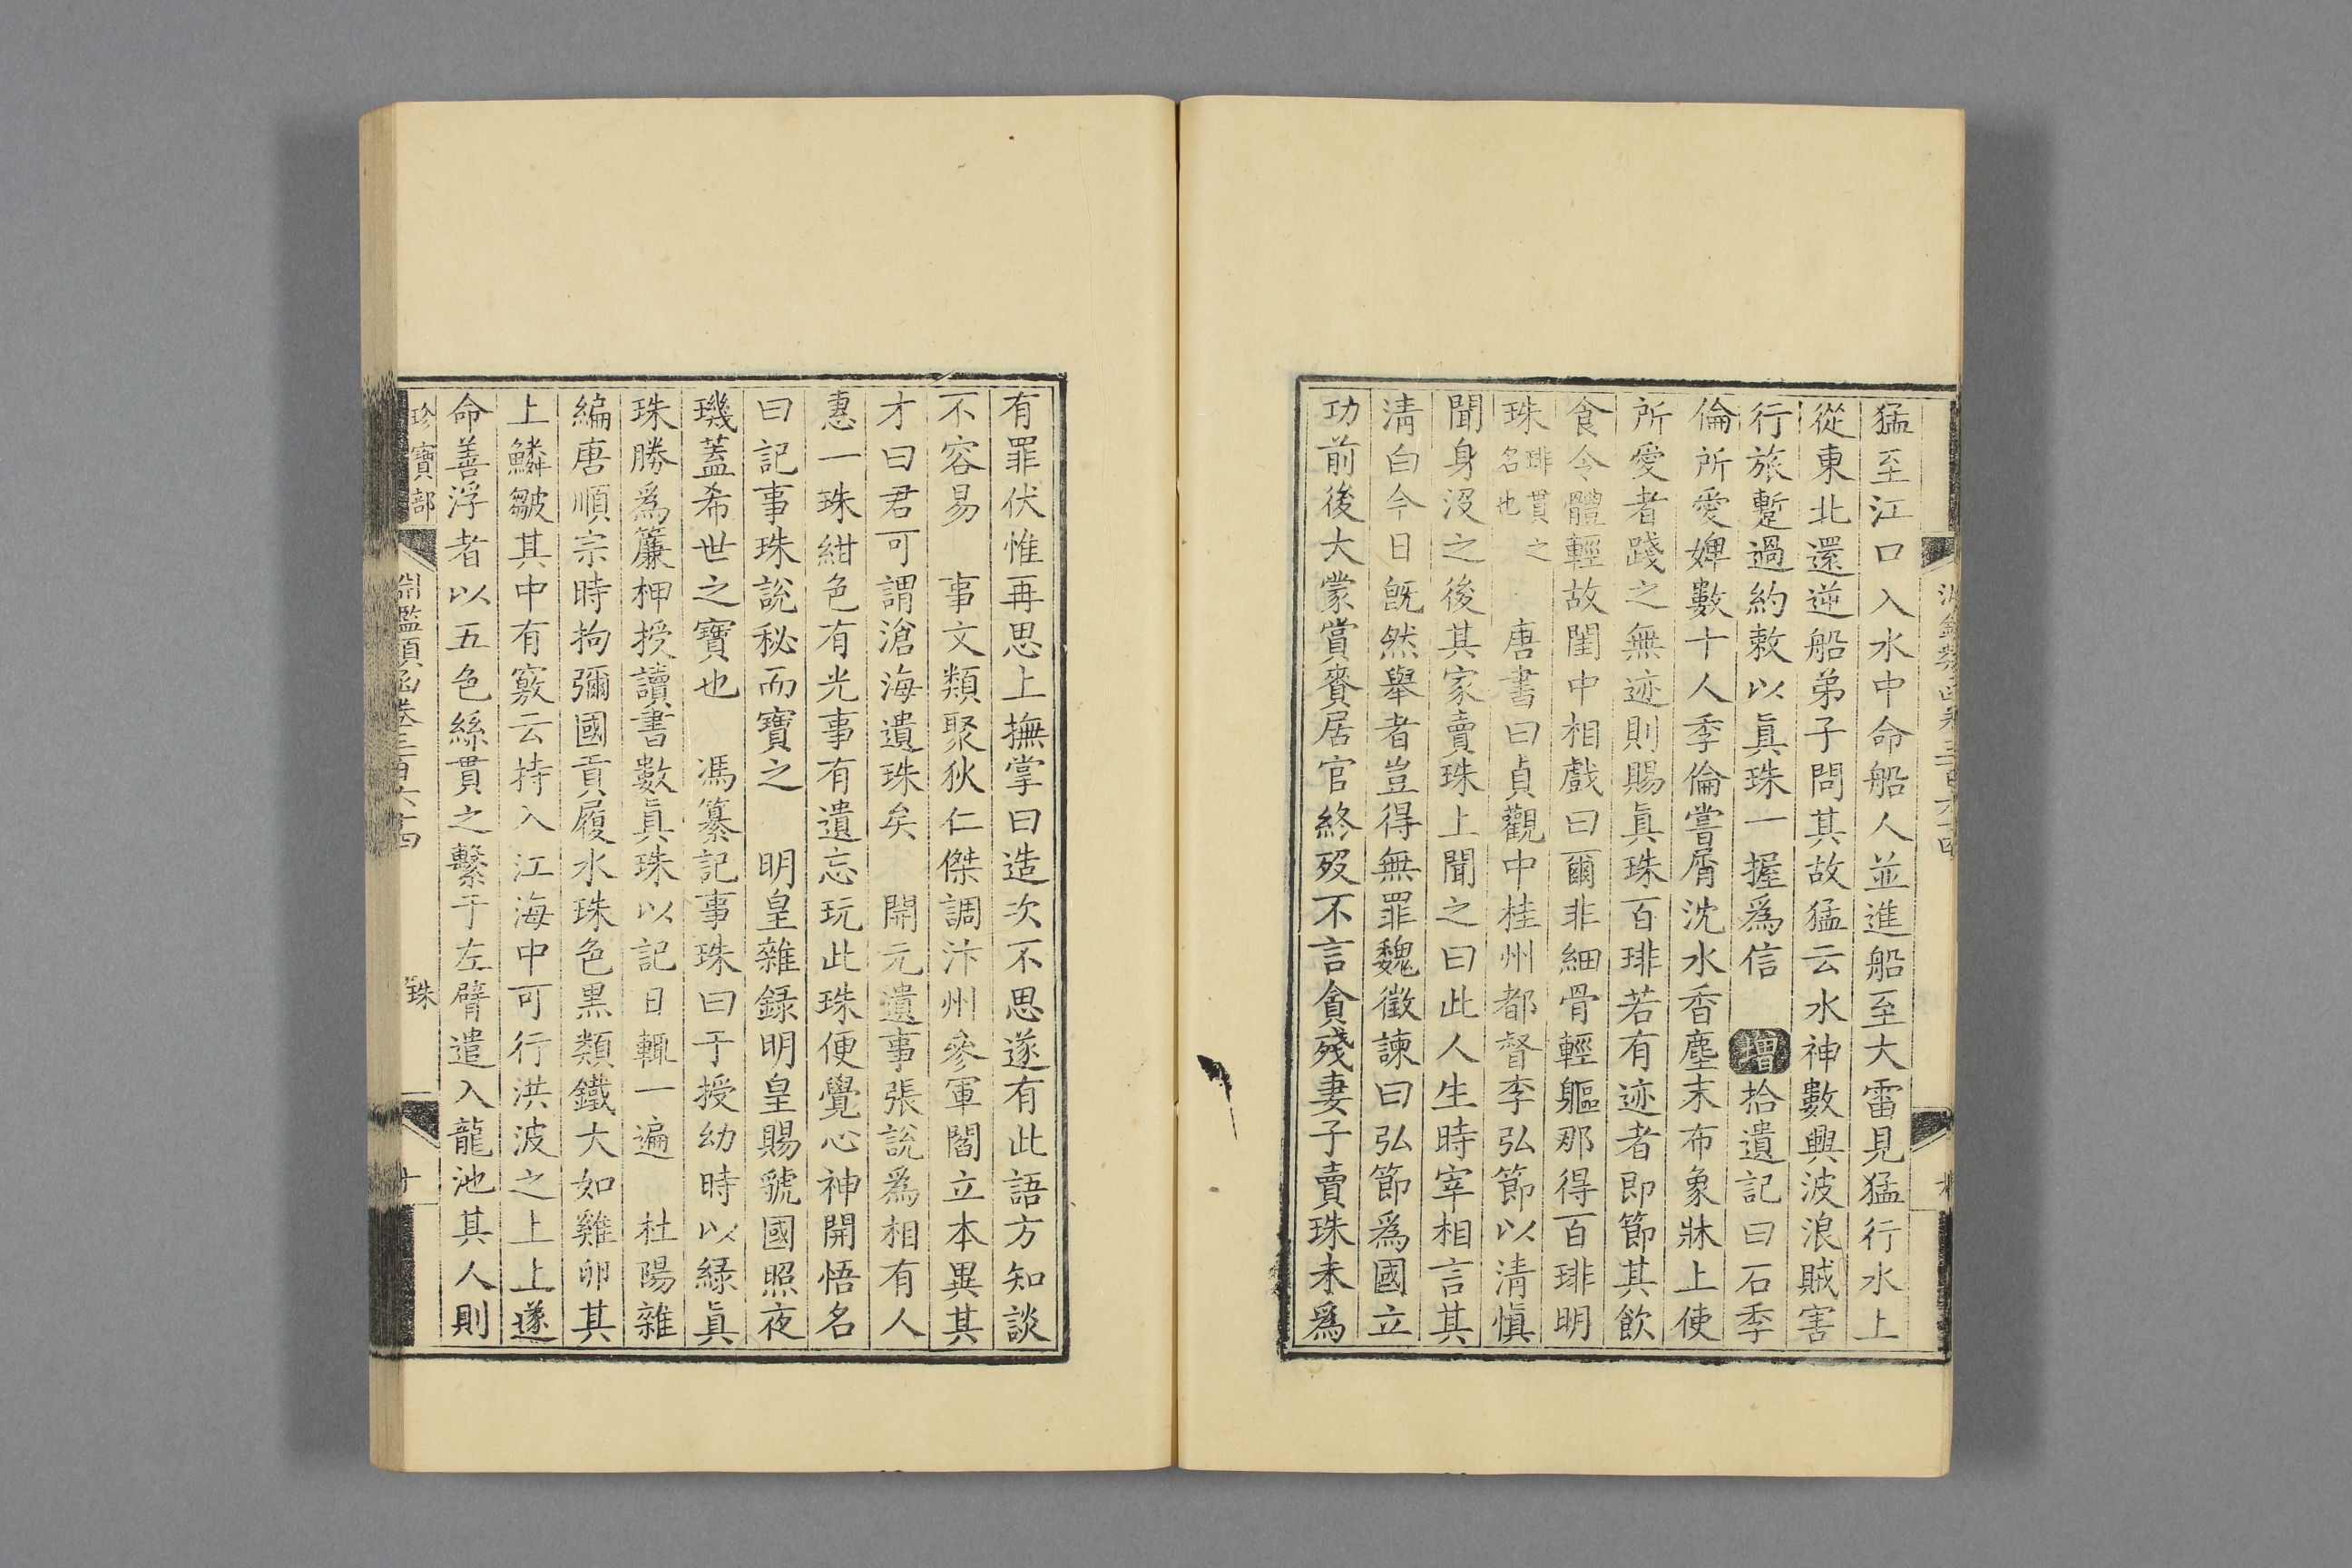 猛至江口入水中命船人並進船至大雷見猛行水上
從東北還逆船弟子問其故猛云水神數興波浪賊害
行旅暫過約敕以眞珠一握爲信　增拾遺記曰石季
倫所愛婢數十人季倫嘗屑沈水香塵末布象牀上使
所愛者踐之無迹則賜眞珠百琲若有迹者即節其飲
食令體輕故閨中相戲曰爾非細骨輕軀那得百琲明
珠琲貫之名也　唐書曰貞觀中桂州都督李弘節以清愼
聞身沒之後其家賣珠上聞之曰此人生時宰相言其
清白今日旣然舉者豈得無罪魏徵諫曰弘節爲國立
功前後大蒙賞賚居官終歿不言貪殘妻子賣珠未爲
有罪伏惟再思上撫掌曰造次不思遂有此語方知談
不容易　事文類聚狄仁傑調汴州參軍閻立本異其
才曰君可謂滄海遺珠矣　開元遺事張說爲相有人
惠一珠紺色有光事有遺忘玩此珠便覺心神開悟名
曰記事珠說秘而寶之　明皇雜録明皇賜虢國照夜
璣蓋希世之寶也　馮纂記事珠曰于授幼時以緑眞
珠勝爲簾柙授讀書數眞珠以記日輒一遍　杜陽雜
編唐順宗時拘彌國貢履水珠色黒類鐵大如雞卵其
上鱗皺其中有竅云持入江海中可行洪波之上上遂
命善浮者以五色絲貫之繫于左臂遣入龍池其人則
珍寶部
淵鑑類函卷三百六十四
珠